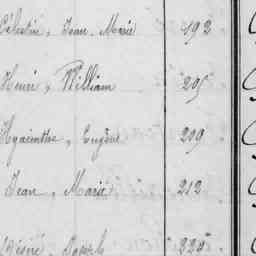 Célestin, Jean, Marie 192
Henri, William 205
Hyacinthe, Eugène 209
Jean, Marie 212
Désiré, Joseph 225